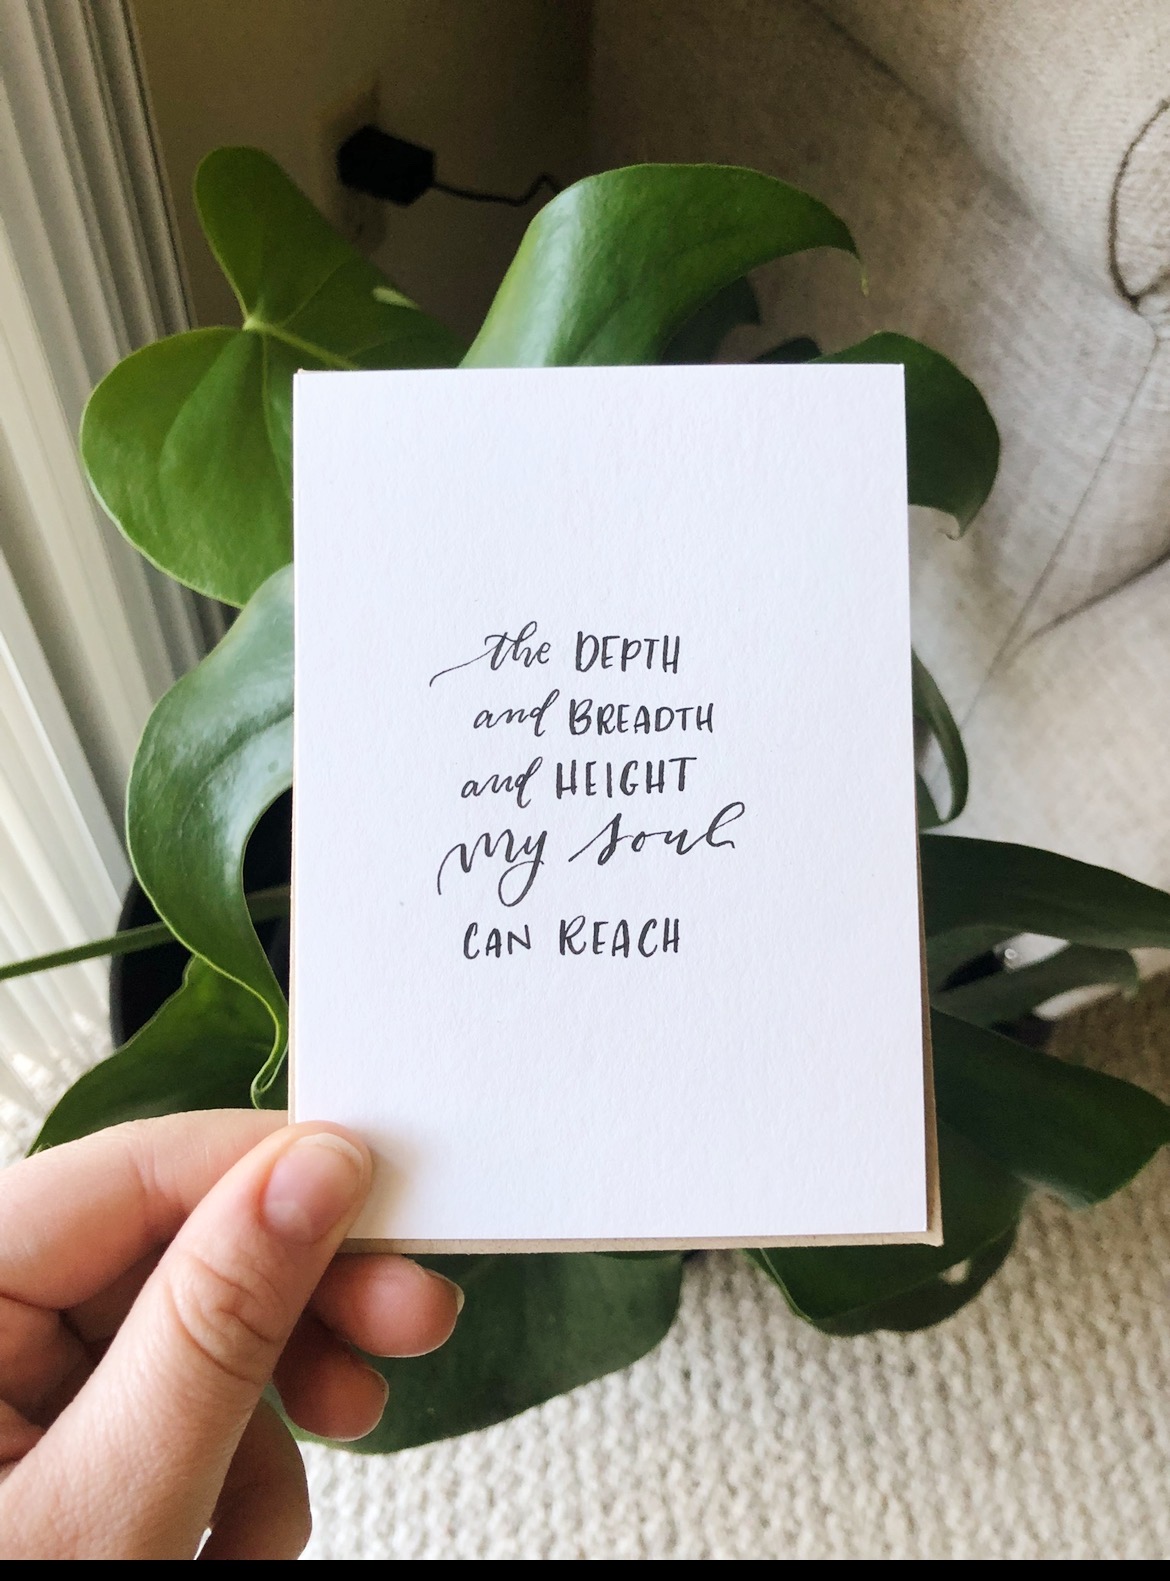 the DEPTH
and BREADTH
and HEIGHT
my soul
CAN REACH